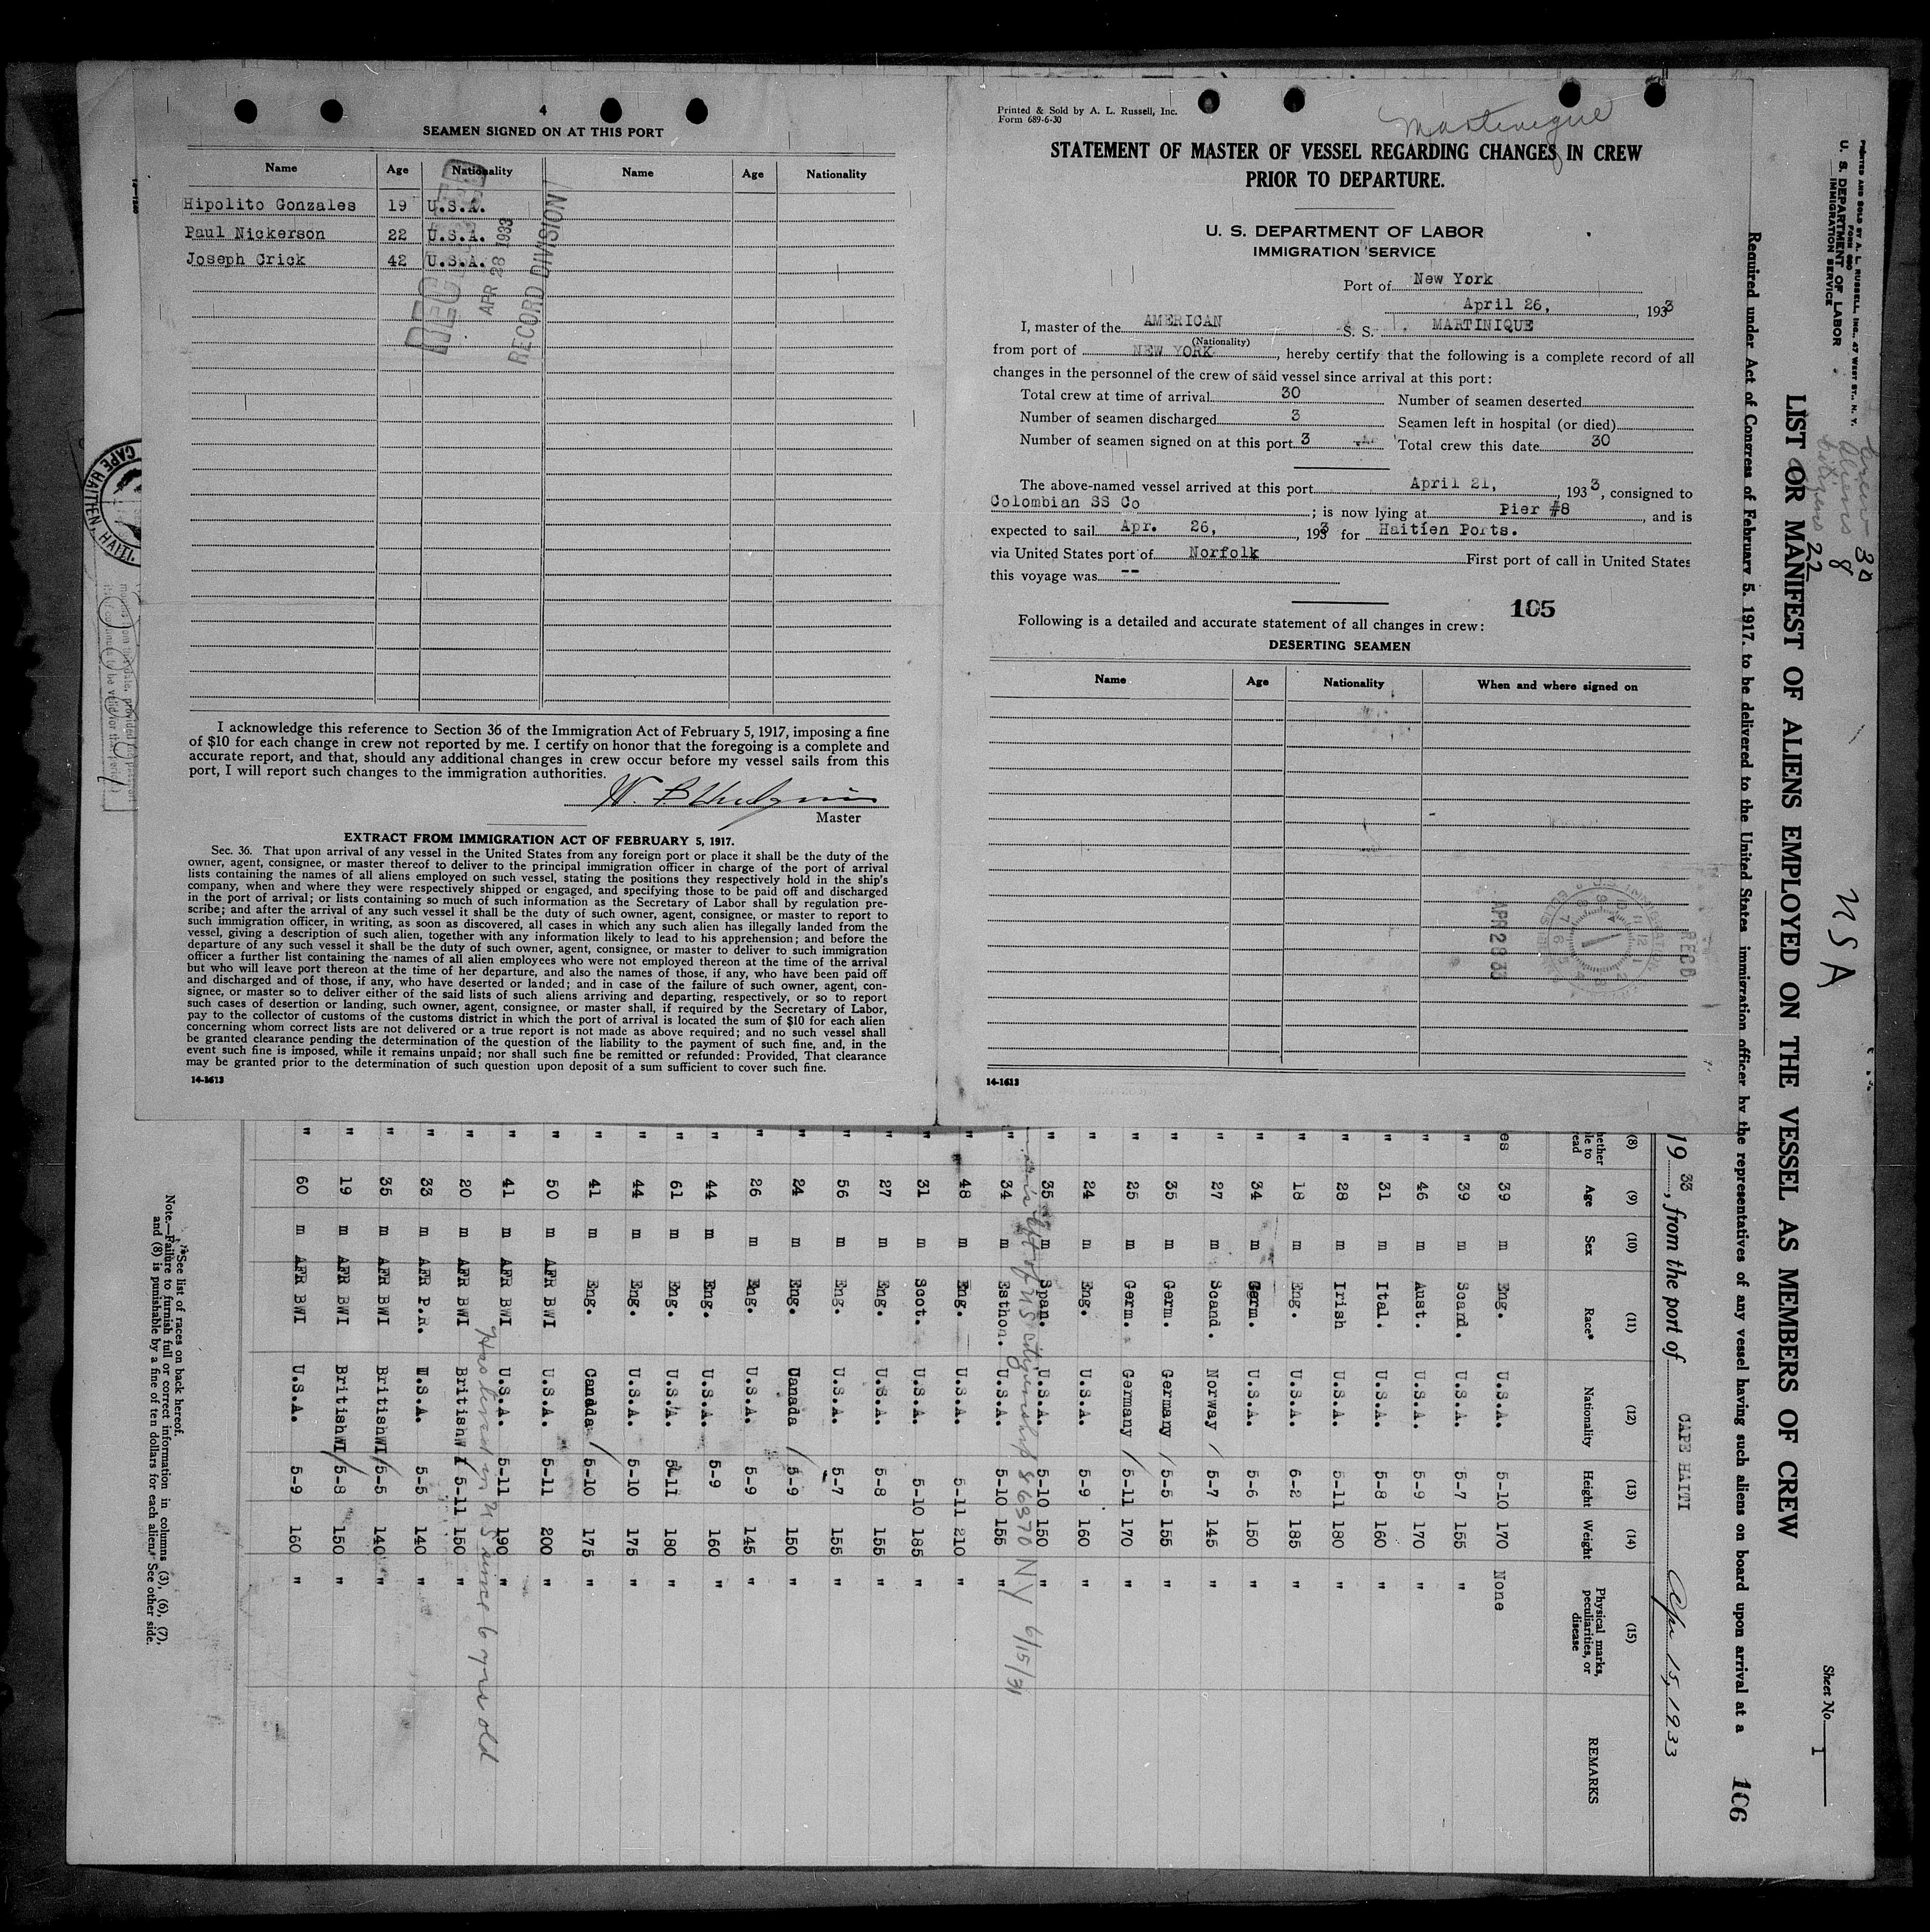 4
SEAMEN SIGNED ON AT THIS PORT
Name Age Nationality Name Age Nationality
Hipolito Gonzales 19 U.S.A.
Paul Nickerson 22 U.S.A.
Joseph Crick 42 U.S.A.
APR 28 1933
RECORD DIVISION
I acknowledge this reference to Section 36 of the Immigration Act of February 5, 1917, imposing a fine
of $10 for each change in crew not reported by me. I certify on honor that the foregoing is a complete and
accurate report, and that, should any additional changes in crew occur before my vessel sails from this
port, I will report such changes to the immigration authorities.
Master
EXTRACT FROM IMMIGRATION ACT OF FEBRUARY 5, 1917.
Sec. 36. That upon arrival of any vessel in the United States from any foreign port or place it shall be the duty of the
owner, agent, consignee, or master thereof to deliver to the principal immigration officer in charge of the port of arrival
lists containing the names of all aliens employed on such vessel, stating the positions they respectively hold in the ship's
company, when and where they were respectively shipped or engaged, and specifying those to be paid off and discharged
in the port of arrival; or lists containing so much of such information as the Secretary of Labor shall by regulation pre-
scribe; and after the arrival of any such vessel it shall be the duty of such owner, agent, consignee, or master to report to
such immigration officer, in writing, as soon as discovered, all cases in which any such alien has illegally landed from the
vessel, giving a description of such alien, together with any information likely to lead to his apprehension; and before the
departure of any such vessel it shall be the duty of such owner, agent, consignee, or master to deliver to such immigration
officer a further list containing the names of all alien employees who were not employed thereon at the time of the arrival
but who will leave port thereon at the time of her departure, and also the names of those, if any, who have been paid off
and discharged and of those, if any, who have deserted or landed; and in case of the failure of such owner, agent, con-
signee, or master so to deliver either of the said lists of such aliens arriving and departing, respectively, or so to report
such cases of desertion or landing, such owner, agent, consignee, or master shall, if required by the Secretary of Labor,
pay to the collector of customs of the customs district in which the port of arrival is located the sum of $10 for each alien
concerning whom correct lists are not delivered or a true report is not made as above required; and no such vessel shall
be granted clearance pending the determination of the question of the liability to the payment of such fine, and, in the
event such fine is imposed, while it remains unpaid; nor shall such fine be remitted or refunded: Provided, That clearance
may be granted prior to the determination of such question upon deposit of a sum sufficient to cover such fine.
14-1613
Printed & Sold by A. L. Russell, Inc.
Form 689-6-30
Martenique
STATEMENT OF MASTER OF VESSEL REGARDING CHANGES IN CREW
PRIOR TO DEPARTURE.
U. S. DEPARTMENT OF LABOR
IMMIGRATION SERVICE
Port of New York
April 26, 1933
I, master of the AMERICAN S. S. MARTINIQUE
(Nationality)
from port of NEW YORK, hereby certify that the following is a complete record of all
changes in the personnel of the crew of said vessel since arrival at this port:
Total crew at time of arrival 30 Number of seamen deserted
Number of seamen discharged 3 Seamen left in hospital (or died)
Number of seamen signed on at this port 3 Total crew this date 30
The above-named vessel arrived at this port April 21, 1933, consigned to
Colombian SS Co ; is now lying at Pier #8, and is
expected to sail Apr. 26, 1933 for Haitien Ports.
via United States port of Norfolk First port of call in United States
this voyage was --
105
Following is a detailed and accurate statement of all changes in crew:
DESERTING SEAMEN
Name Age Nationality When and where signed on
APR 28 33
REC'D
14-1613
CAPE HAITIEN, HAITI.
PRINTED AND SOLD BY A. L. RUSSELL, INC., 47 WEST ST., N. Y.
FORM 680
U. S. DEPARTMENT OF LABOR
IMMIGRATION SERVICE
30
Aliens 8
22
USA
Sheet No. 1
LIST OR MANIFEST OF ALIENS EMPLOYED ON THE VESSEL AS MEMBERS OF CREW
Required under Act of Congress of February 5, 1917, to be delivered to the United States immigration officer by the representatives of any vessel having such aliens on board upon arrival at a
106
1933, from the port of CAPE HAITI Apr 15, 1933
(8) (9) (10) (11) (12) (13) (14) (15)
hether le to read Age Sex Race* Nationality Height Weight Physical marks, peculiarities, or disease REMARKS
es 39 m Eng. U.S.A. 5-10 170 None
" 39 m Scand. U.S.A. 5-7 155 "
" 46 m Aust. U.S.A. 5-9 170 "
" 31 m Ital. U.S.A. 5-8 160 "
" 28 m Irish U.S.A. 5-11 180 "
" 18 m Eng. U.S.A. 6-2 185 "
" 34 m Germ. U.S.A. 5-6 150 "
" 27 m Scand. Norway / 5-7 145 "
" 35 m Germ. Germany / 5-5 155 "
" 25 m Germ. Germany / 5-11 170 "
" 24 m Eng. U.S.A. 5-9 160 "
" 35 m Span. U.S.A. 5-10 150 "
of US citizenship 86370 NY 6/15/31
" 34 m Esthon. U.S.A. 5-10 155 "
" 48 m Eng. U.S.A. 5-11 210 "
" 31 m Scot. U.S.A. 5-10 185 "
" 27 m Eng. U.S.A. 5-8 155 "
" 56 m Eng. U.S.A. 5-7 155 "
" 24 m Eng. Canada / 5-9 150 "
" 26 m Eng. U.S.A. 5-9 145 "
" 44 m Eng. U.S.A. 5-9 160 "
" 61 m Eng. U.S.A. 5-11 180 "
" 44 m Eng. U.S.A. 5-10 175 "
" 41 m Eng. Canada / 5-10 175 "
" 50 m AFR BWI U.S.A. 5-11 200 "
" 41 m AFR BWI U.S.A. 5-11 190 "
Has lived in US since 6 yrs old
" 20 m AFR BWI BritishWI 5-11 150 "
" 33 m AFR P.R. U.S.A. 5-5 140 "
" 35 m AFR BWI BritishWI / 5-5 140 "
" 19 m AFR BWI BritishWI / 5-8 150 "
" 60 m AFR BWI U.S.A. 5-9 160 "
*See list of races on back hereof.
Note.—Failure to furnish full or correct information in columns (3), (6), (7),
and (8) is punishable by a fine of ten dollars for each alien. See other side.